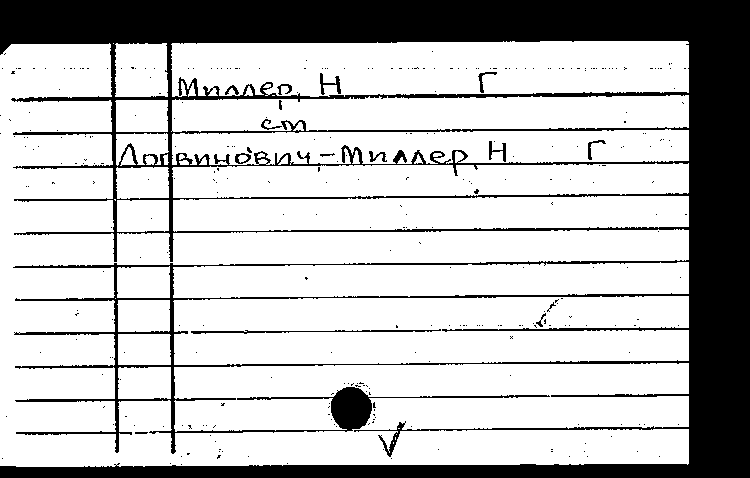 Миллер, Н Г
ст
Логвинович,-Миллер, Н Г